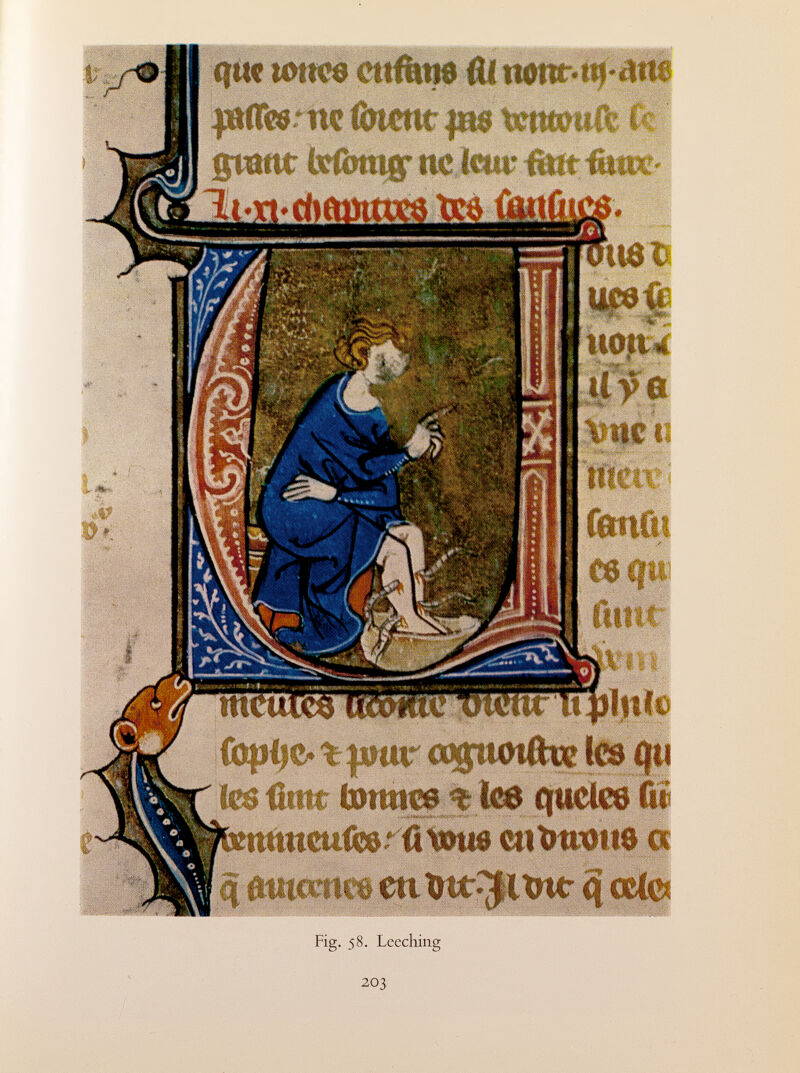 que toutes enfans sil nont·iij·ans
passes: ne soient pas ventouse se
grant besoing ne leur fait faire·
Li·xi·chapitres des sansues.
ous d
ues se
il y a
vne
mere
sansu
es qui
sunt
uen
meuses si come dient li philo
sophe· ⁊ pour cognoistre les qu
les sunt bonnes ⁊ les queles sū
venimeuses: si vous en dirons ce
q̄ auicenes en dit·Il dit q̄ celes
Fig. 58. Leeching
203